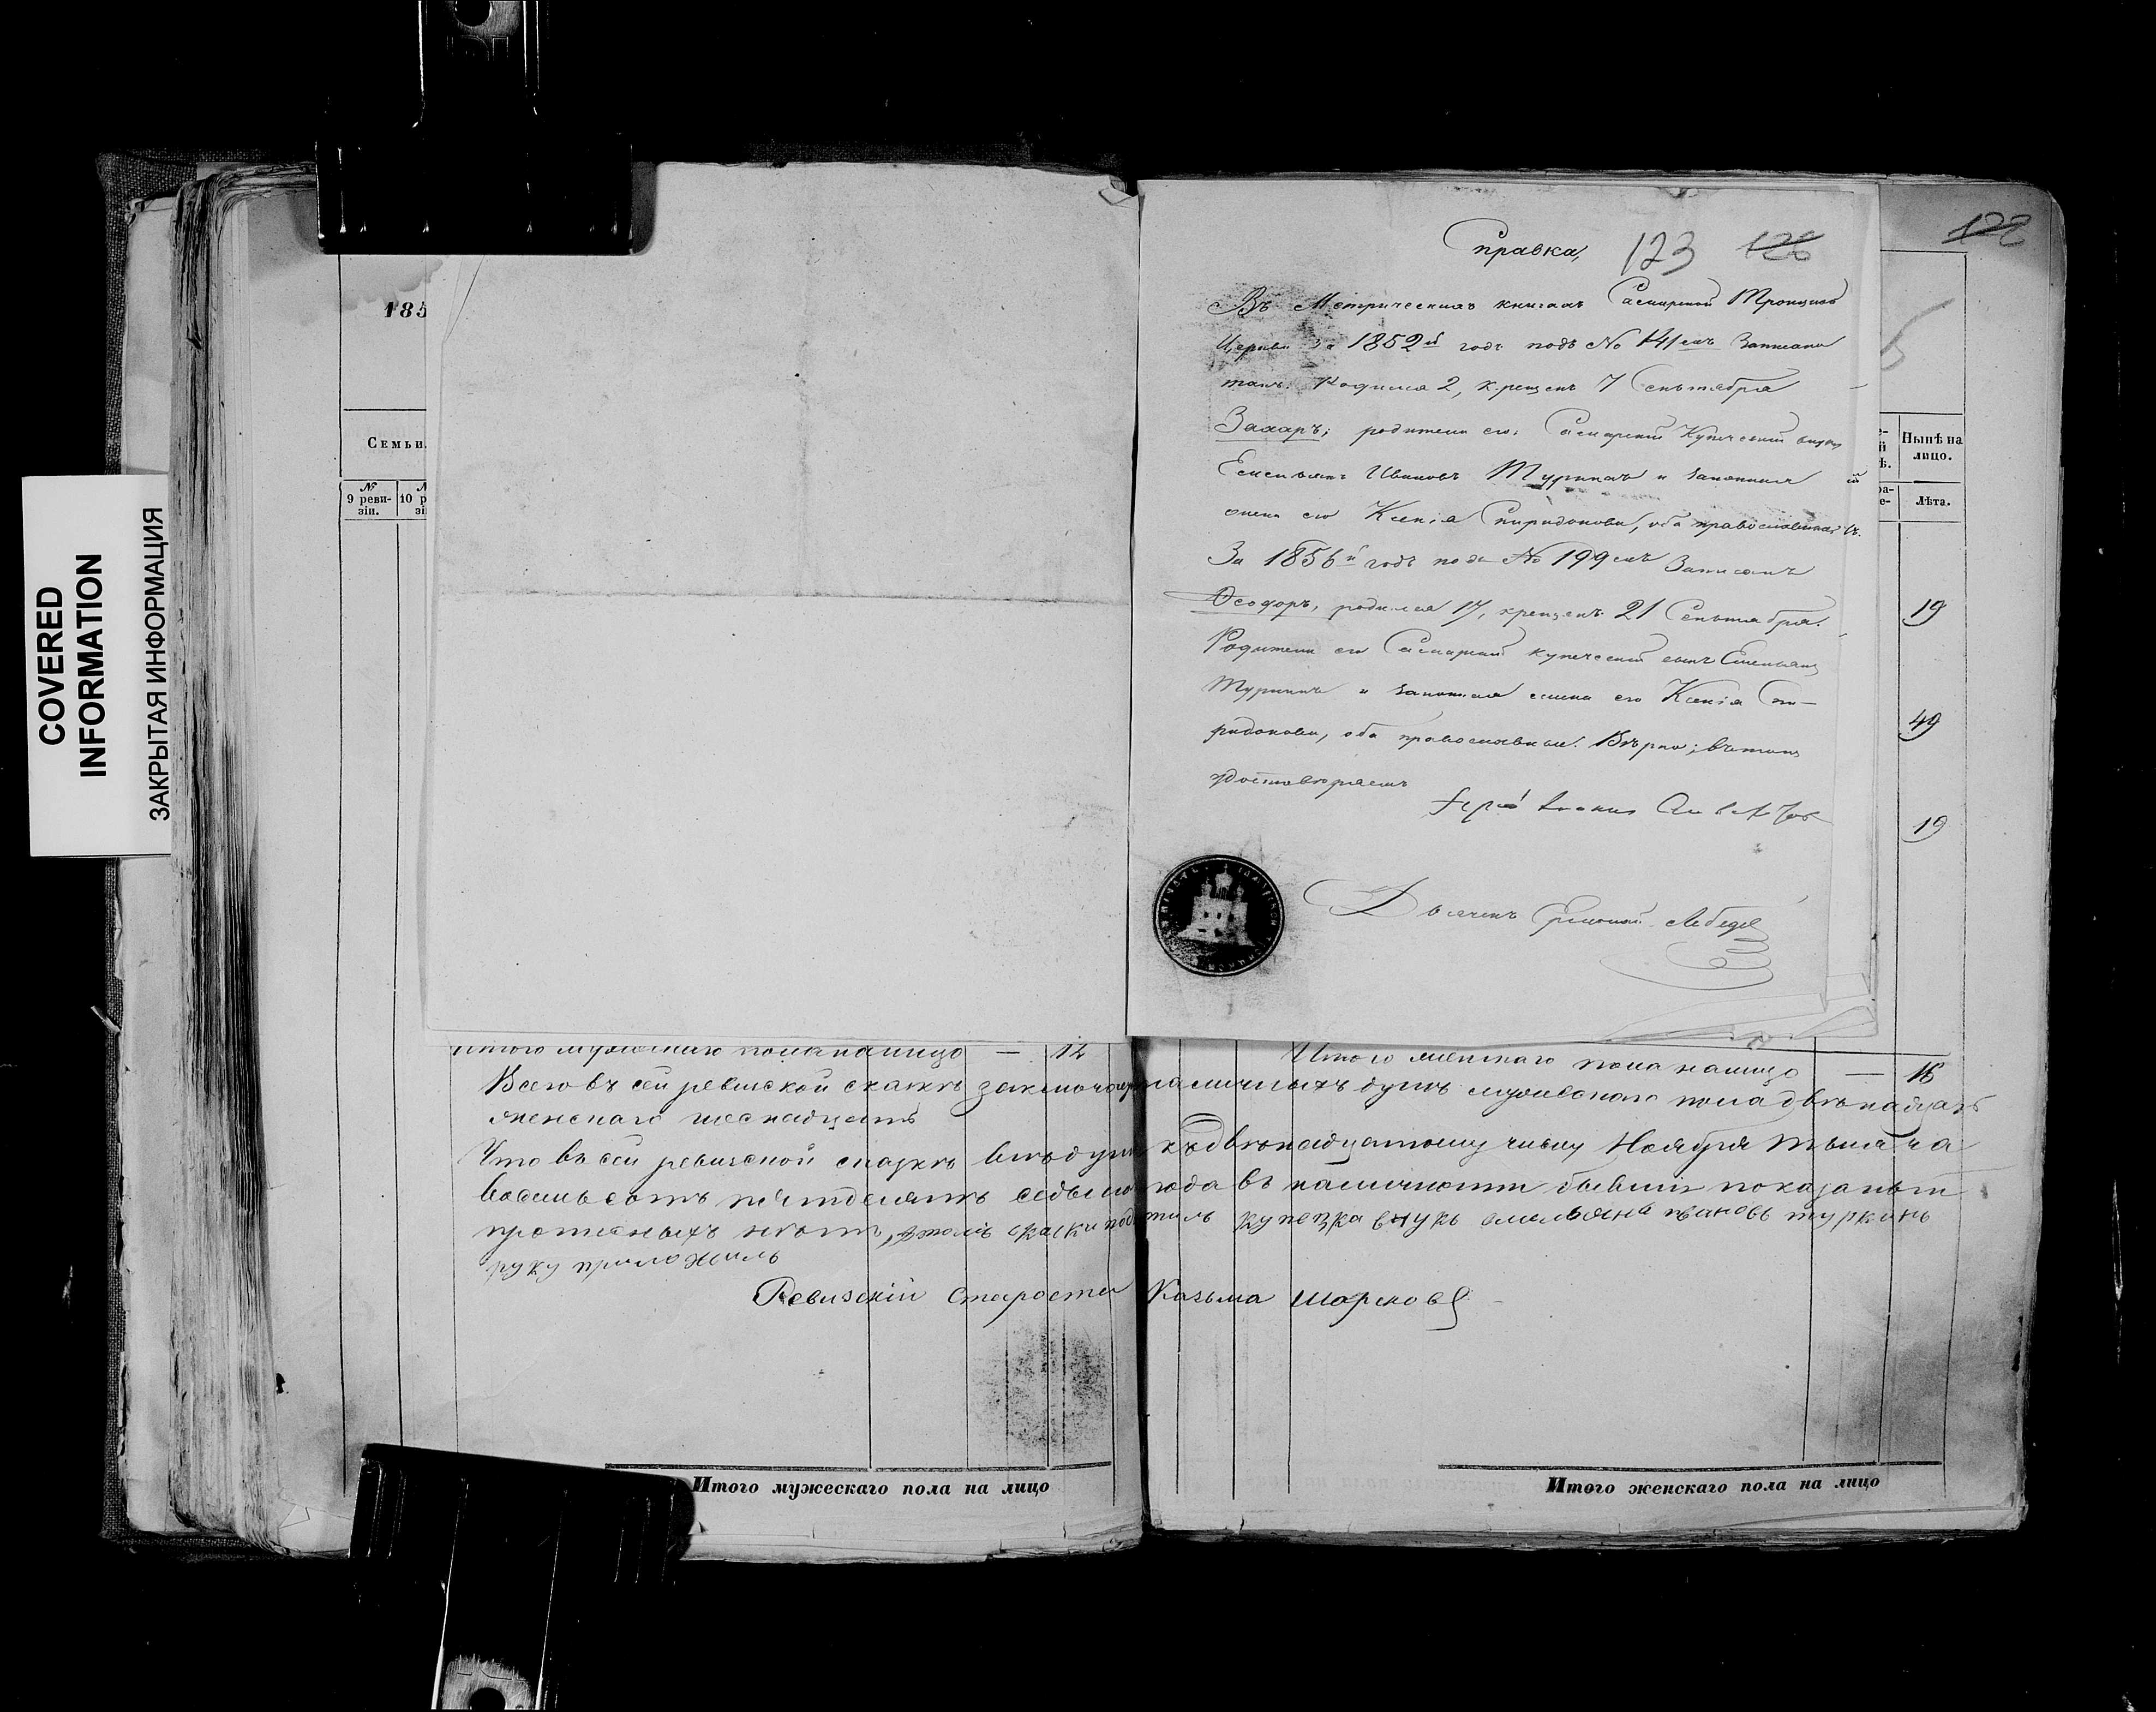 COVERED
INFORMATION
ЗАКРЫТАЯ ИНФОРМАЦИЯ
185
Семьи
№ 9 реви-
зіи.
10 р
зі
Справка,
123 126
122
Въ Метрическихъ книгахъ Самарской Троицкой
Церкви за 1852й годъ подъ № 141емъ Записано
такъ: Родился 2, крещенъ 7 Сентября
Захаръ; родители его: Самарский Купеческий внукъ
Емельянъ Ивановъ Туркинъ и законная
жена его Ксенія Спиридонова, оба православные.
За 1856й годъ подъ № 199емъ Записанъ
Ѳеодоръ, родился 17, крещенъ 21 Сентября.
Родители его Самарский купеческий сынъ Емельянъ
Туркинъ и законная жена его Ксенія Спи-
ридонова, оба православные. Вѣрно; въ томъ
удостовѣряемъ
Дьячекъ Лебедев
Нынѣ на
лицо.
Лѣта.
19
49
19
Итого мужескаго пола налицо — 12
Итого женскаго пола налицо — 16
Всего въ сей ревиской скаскѣ наличныхъ душъ мужескаго пола двѣнадцать
женскаго шеснадцать
Что въ сей ревиской скаскѣ всѣ души къ двенадцатому числу Ноября тысяча
восемьсотъ пятдесятъ седьмого года въ наличности бывшіе показаны и
прописныхъ нѣтъ, къ скаски купецка внукъ емельянъ ивановъ туркинъ
руку приложилъ
Ревизскій Староста Казьма Шорсковъ
Итого мужескаго пола на лицо
Итого женскаго пола на лицо